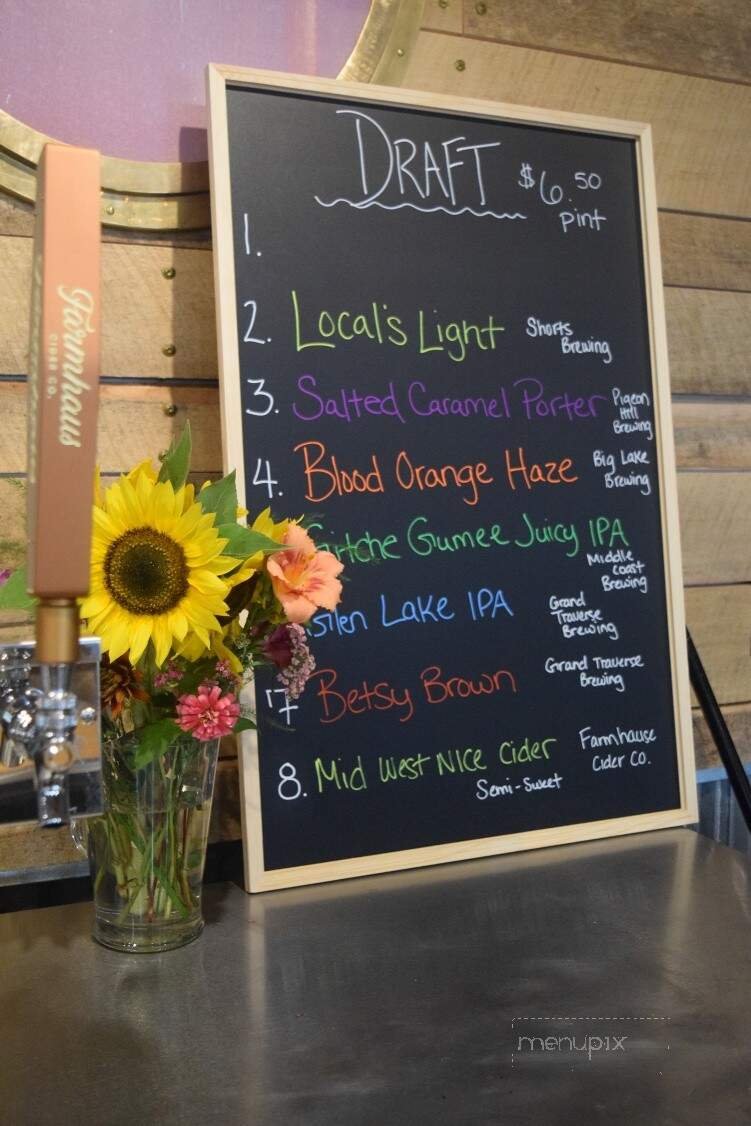 DRAFT $6.50
pint
1.
2. Local's Light Shorts
Brewing
3. Salted Caramel Porter Pigeon
Hill
Brewing
4. Blood Orange Haze Big Lake
Brewing
Gumee Juicy IPA
Middle
Coast
Brewing
Lake IPA Grand
Traverse
Brewing
7 Betsy Brown Grand Traverse
Brewing
8. Mid West Nice Cider Farmhause
Cider Co.
Semi-Sweet
Farmhaus
CIDER CO.
menupix